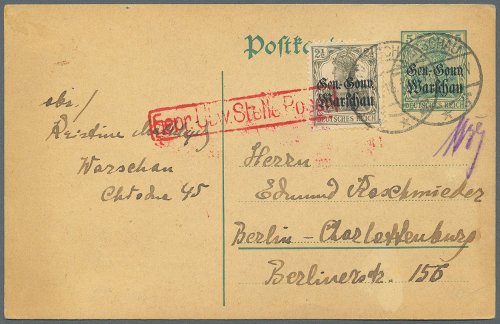 Postkarte
5 5
2½ 2½
Gen.-Gouv.
Warschau
DEUTSCHES REICH
Gen.-Gouv.
Warschau
DEUTSCHES REICH
WARSCHAU
Gepr. Übw. Stelle Posen
abs/
Kristine
Warszau
Chłodna 45
Herrn
Edmund Raschmieder
Berlin - Charlottenburg
Berlinerstr. 156